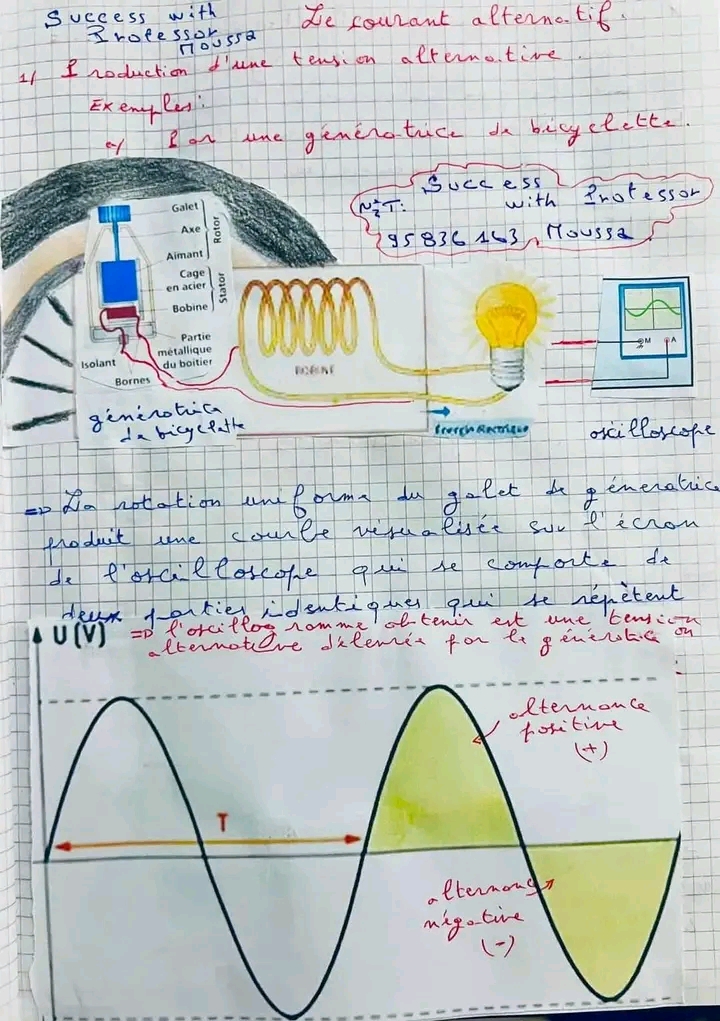 Success with
Professor
Moussa
Le courant alternatif.
1/ Production d'une tension alternative.
Exemples:
a/ Par une génératrice de bicyclette.
Success
with Professor
95836163 Moussa
Galet
Axe
Aimant
Rotor
Cage
en acier
Bobine
Stator
Partie
métallique
du boitier
Isolant
Bornes
génératrice
de bicyclette
BOBINE
Energie électrique
M A
oscilloscope
=> La rotation uniforme du galet de géneratrice
produit une courbe visualisée sur l'écran
de l'oscilloscope qui se comporte de
deux parties identiques qui se répètent
=> l'oscillogramme obtenir est une tension
alternative délenrée par le génératrice
U(V)
alternance
positive
(+)
T
alternance
négative
(-)